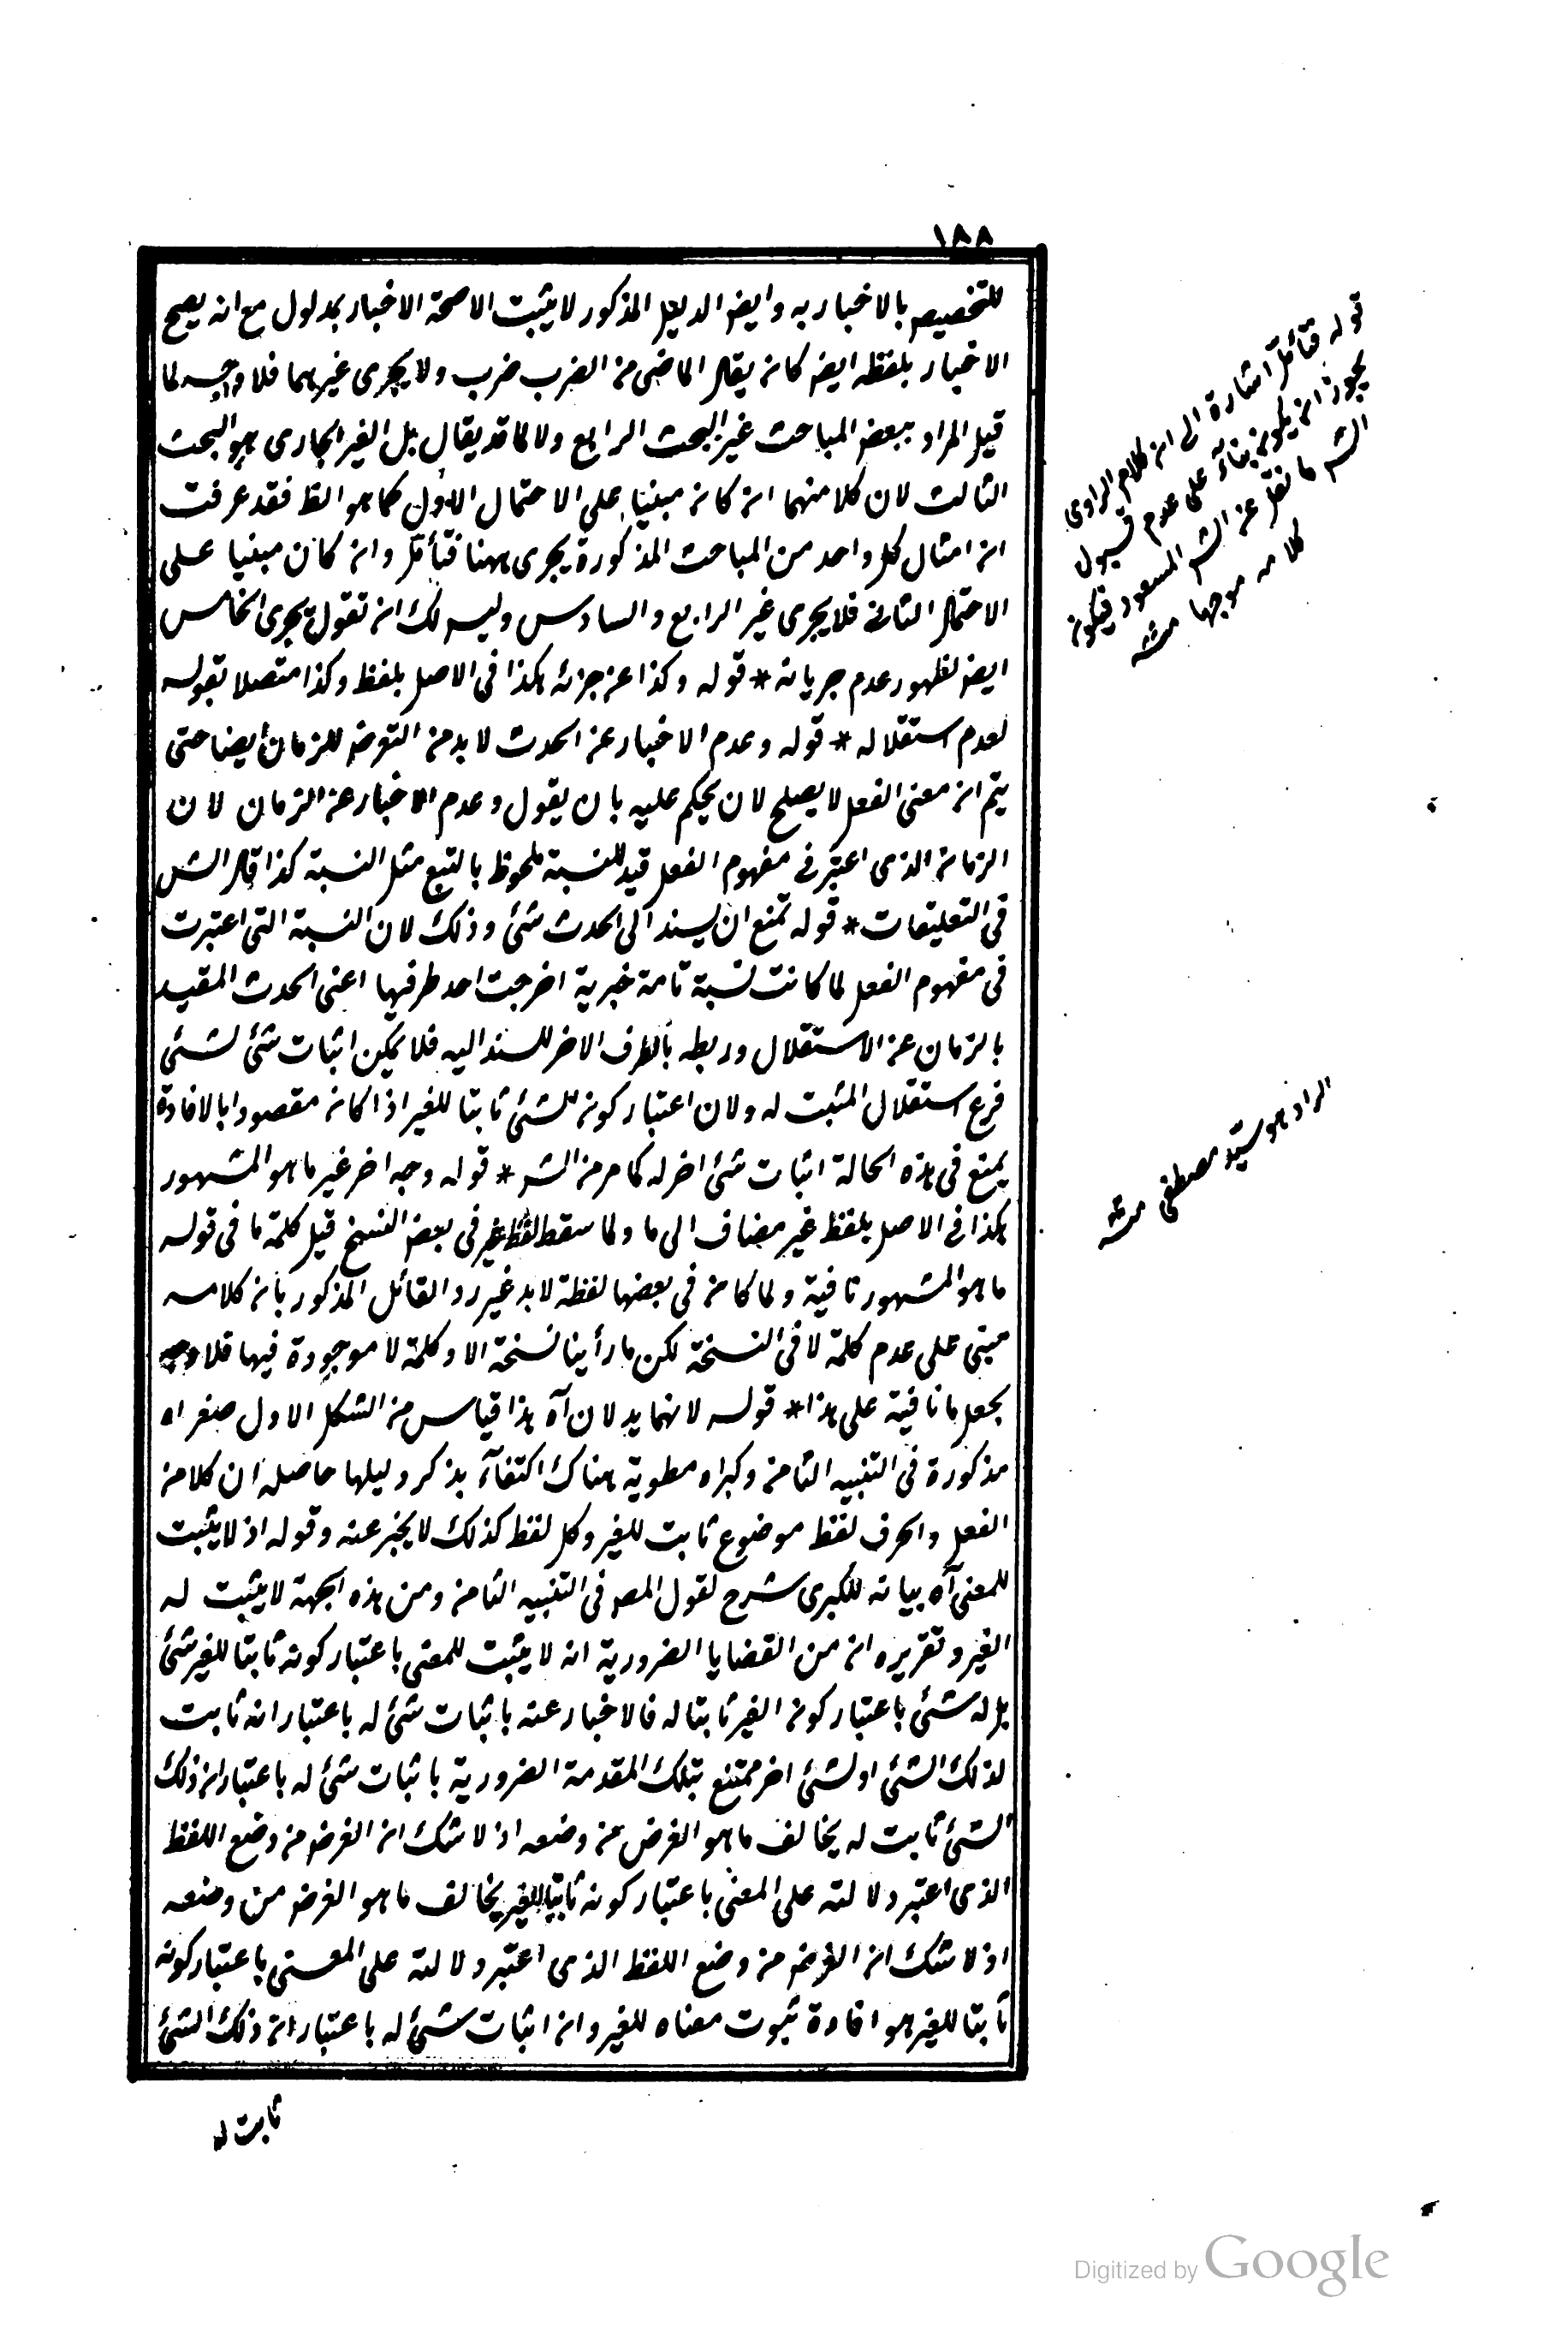 ١٥٥
للتخصيص بالاخبار به وايض الدليل المذكور لا يثبت الا صحة الاخبار بمدلول مع انه يصح
الاخبار بلفظه ايض كان يقال الماضى من الضرب ضرب ولا يجرى غيرهما فلا وجه لما
قيل المراد ببعض المباحث غير البحث الرابع ولا لما قد يقال بل الغير الجارى هو البحث
الثالث لان كلا منهما ان كان مبنيا على الاحتمال الاول كما هو الظ فقد عرفت
ان امثال كل واحد من المباحث المذكورة يجرى ههنا فتأمل وان كان مبنيا على
الاحتمال الثانى فلا يجرى غير الرابع والسادس وليس لك ان تقول يجرى الخامس
ايض لظهور عدم جريانه * قوله وكذا عن جزئه هكذا فى الاصل بلفظ وكذا متصلا بقوله
لعدم استقلاله * قوله وعدم الاخبار عن الحدث لا بد من التعرض للزمان ايضا حتى
يتم ان معنى الفعل لا يصلح لان يحكم عليه بان يقول وعدم الاخبار عن الزمان لان
الزمان الذى اعتبر فى مفهوم الفعل قيد للنسبة ملحوظ بالتبع مثل النسبة كذا قال الش
فى التعليقات * قوله تمنع ان يسند الى الحدث شئ وذلك لان النسبة التى اعتبرت
فى مفهوم الفعل لما كانت نسبة تامة خبرية اخرجت احد طرفيها اعنى الحدث المقيد
بالزمان عن الاستقلال وربطه بالطرف الاخر للمسند اليه فلا يمكن اثبات شئ لشئ
فرع استقلال المثبت له ولان اعتبار كونه للشئ ثابتا للغير اذا كان مقصودا بالافادة
يمنع فى هذه الحالة اثبات شئ اخر له كما مر من الش * قوله وجه اخر غير ما هو المشهور
هكذا فى الاصل بلفظ غير مضاف الى ما ولما سقط لفظ غير فى بعض النسخ قيل كلمة ما فى قوله
ما هو المشهور نافية ولما كان فى بعضها لفظة لا بد غير رد القائل المذكور بان كلامه
مبنى على عدم كلمة لا فى النسخة لكن ما رأينا نسخة الا وكلمة لا موجودة فيها فلا وجه
بجعل ما نافية على هذا * قوله لانهما يدلان آه هذا قياس من الشكل الاول صغراه
مذكورة فى التنبيه الثامن وكبراه مطوية هناك اكتفآء بذكر دليلها حاصله ان كلا من
الفعل والحرف لفظ موضوع ثابت للغير وكل لفظ كذلك لا يخبر عنه وقوله اذ لا يثبت
للمعنى آه بيانه للكبرى شرح لقول المص فى التنبيه الثامن ومن هذه الجهة لا يثبت له
الغير وتقريره ان من القضايا الضرورية انه لا يثبت للمعنى باعتبار كونه ثابتا للغير شئ
بل له شئ باعتبار كون الغير ثابتا له فالاخبار عنه باثبات شئ له باعتبار انه ثابت
لذلك الشئ او لشئ اخر ممتنع بتلك المقدمة الضرورية باثبات شئ له باعتبار ان ذلك
الشئ ثابت له يخالف ما هو الغرض من وضعه اذ لا شك ان الغرض من وضع اللفظ
الذى اعتبر دلالته على المعنى باعتبار كونه ثابتا للغير يخالف ما هو الغرض من وضعه
اذ لا شك ان الغرض من وضع اللفظ الذى اعتبر دلالته على المعنى باعتبار كونه
ثابتا للغير هو افادة ثبوت معناه للغير وان اثبات شئ له باعتبار ان ذلك الشئ
ثابت له
قوله فتأمل اشارة الى ان كلام الراوى
يجوز ان يكون بناء على عدم قبول
الش ما نقل عن الش المسعود فيكون
كلامه موجها منه
الراد هو سيد مصطفى منه
Digitized by Google